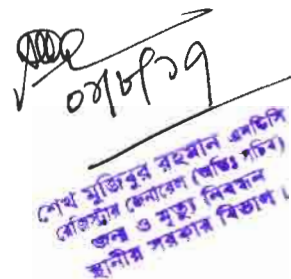 ০২/৮/১৭
শেখ মুজিবুর রহমান এনডিসি
রেজিস্ট্রার জেনারেল (অতিঃ সচিব)
জন্ম ও মৃত্যু নিবন্ধন
স্থানীয় সরকার বিভাগ।